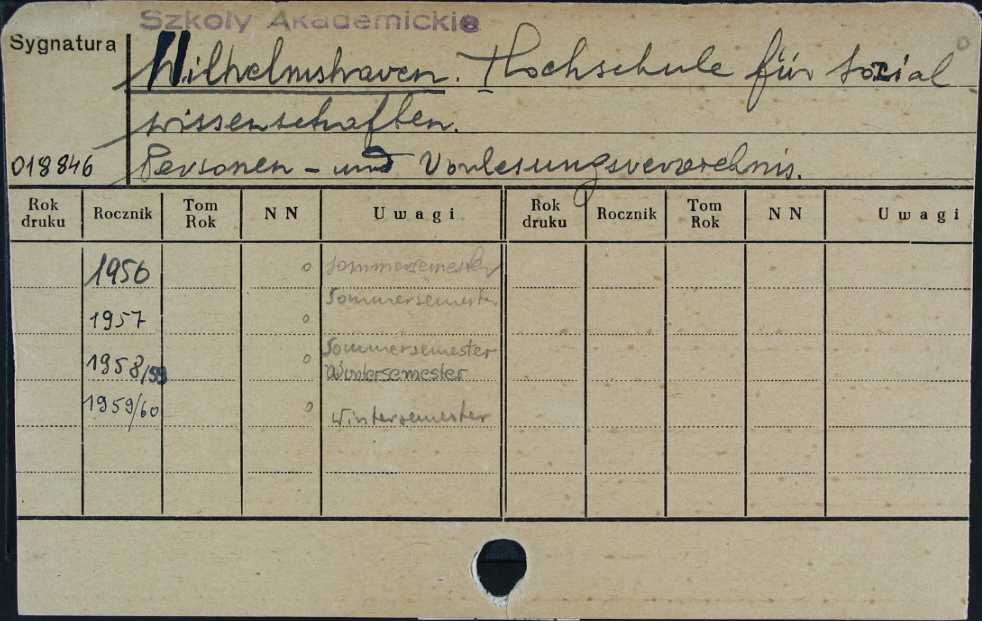 Szkoły Akademickie
Sygnatura
Wilhelmshaven. Hochschule für Sozial
wissenschaften.
018846 Personen - und Vorlesungsverzeichnis.
Rok druku Rocznik Tom Rok N N Uwagi Rok druku Rocznik Tom Rok N N Uwagi
1956 o Sommersemester
1957 o Sommersemester
1958/59 o Sommersemester
Wintersemester
1959/60 o Wintersemester